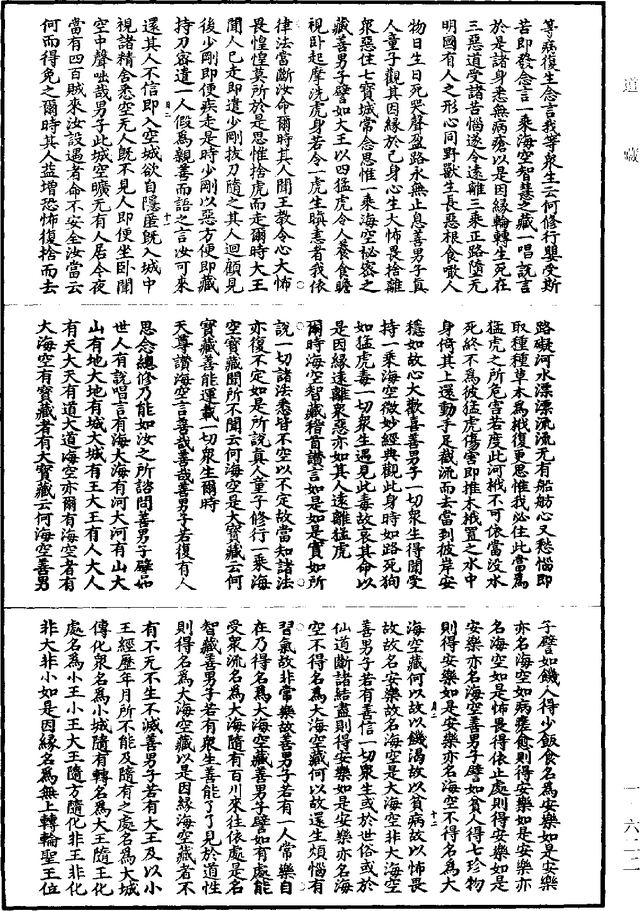 道藏
等病復生念言我等衆生云何修行嬰受斯
苦即發念言一乘海空智慧之藏一唱說言
於是諸身悉無病瘡以是因緣輪轉生死在
三惡道受諸苦惱遂令遠離三乘正路隨无
明國有人之形心同野獸生長惡根食噉人
物日生日死哭聲盈路永無止息善男子真
人童子觀其因緣於己身心生大怖畏捨離
衆惡住七寶城常念思惟一乘海空祕密之
藏善男子譬如大王以四猛虎令人養食瞻
視卧起摩洗虎身若令一虎生瞋恚者我依
律法當斷汝命爾時其人聞王教令心大怖
畏惶惶莫所於是思惟捨虎而走爾時大王
聞人已走即遣少剛拔刀隨之其人迴顧見
後少剛即便疾走是時少剛以惡方便即藏
持刀密遣一人假為親善而語之言汝可來
還其人不信即入空城欲自隱匿既入城中
視諸精舍悉空无人既不見人即便坐卧聞
空中聲咄哉男子此城空曠无有人居今夜
當有四百賊來汝設遇者命不安全汝當云
何而得免之爾時其人益增恐怖復捨而去
路礙河水漂漂流流无有船舫心又愁惱即
取種種草木為栰復更思惟我必住此當為
猛虎之所危害若度此河栰不可依當没水
死終不為彼猛虎傷害即推木栰置之水中
身倚其上運動手足截流而去當到彼岸安
穩如故心大歡喜善男子一切衆生得聞受
持一乘海空微妙經典觀此身時如路死狗
如猛虎毒一切衆生遇見此毒故喪其命以
是因緣遠離衆惡亦如其人遠離往虎
爾時海空智藏稽首讚言如是如是實如所
說一切諸法悉皆不空以不定故當知諸法
亦復不定如是所說真人童子修行一乘海
空寶藏聞所不聞云何海空是大寶藏云何
寶藏善能運載一切衆生爾時
天尊讚海空言善哉善哉善男子若復有人
思念總修乃能如汝之所諮問善男子譬如
世人有說唱言有海大海有河大河有山大
山有地大地有城大城有王大王有人大人
有天大天有道大道海空亦爾有海空者有
大海空有寶藏者有大寶藏云何海空善男
子譬如饑人得少飯食名為安樂如是安樂
亦名海空如病瘥愈則得安樂如是安樂亦
名海空如是怖畏得依止處則得安樂如是
安樂亦名海空善男子譬如貧人得七珍物
則得安樂如是安樂亦名海空不得名為大
海空藏何以故以饑渴故以貧病故以怖畏
故故名安樂故名海空是大海空非大海空
善男子若有善信一切衆生或於世俗或於
仙道斷諸結盡則得安樂如是安樂亦名海
空不得名為大海空藏何以故還生煩惱有
習氣故非常樂故善男子若有一人常樂自
在乃得名為大海空藏善男子譬如有處能
受衆流名為大海隨有百川來往依處是名
智藏善男子若有衆生善能了了見於道性
則得名為大海空藏以是因緣海空藏者不
有不死不生不滅善男子若有大王及以小
王經歷年月所不能及隨有之處名為大城
傳化衆名為小城隨有轉名為大王隨王化
處名為小王小王大王隨方隨化非王非化
非大非小如是因緣名為無上轉輪聖王位
一·六二二